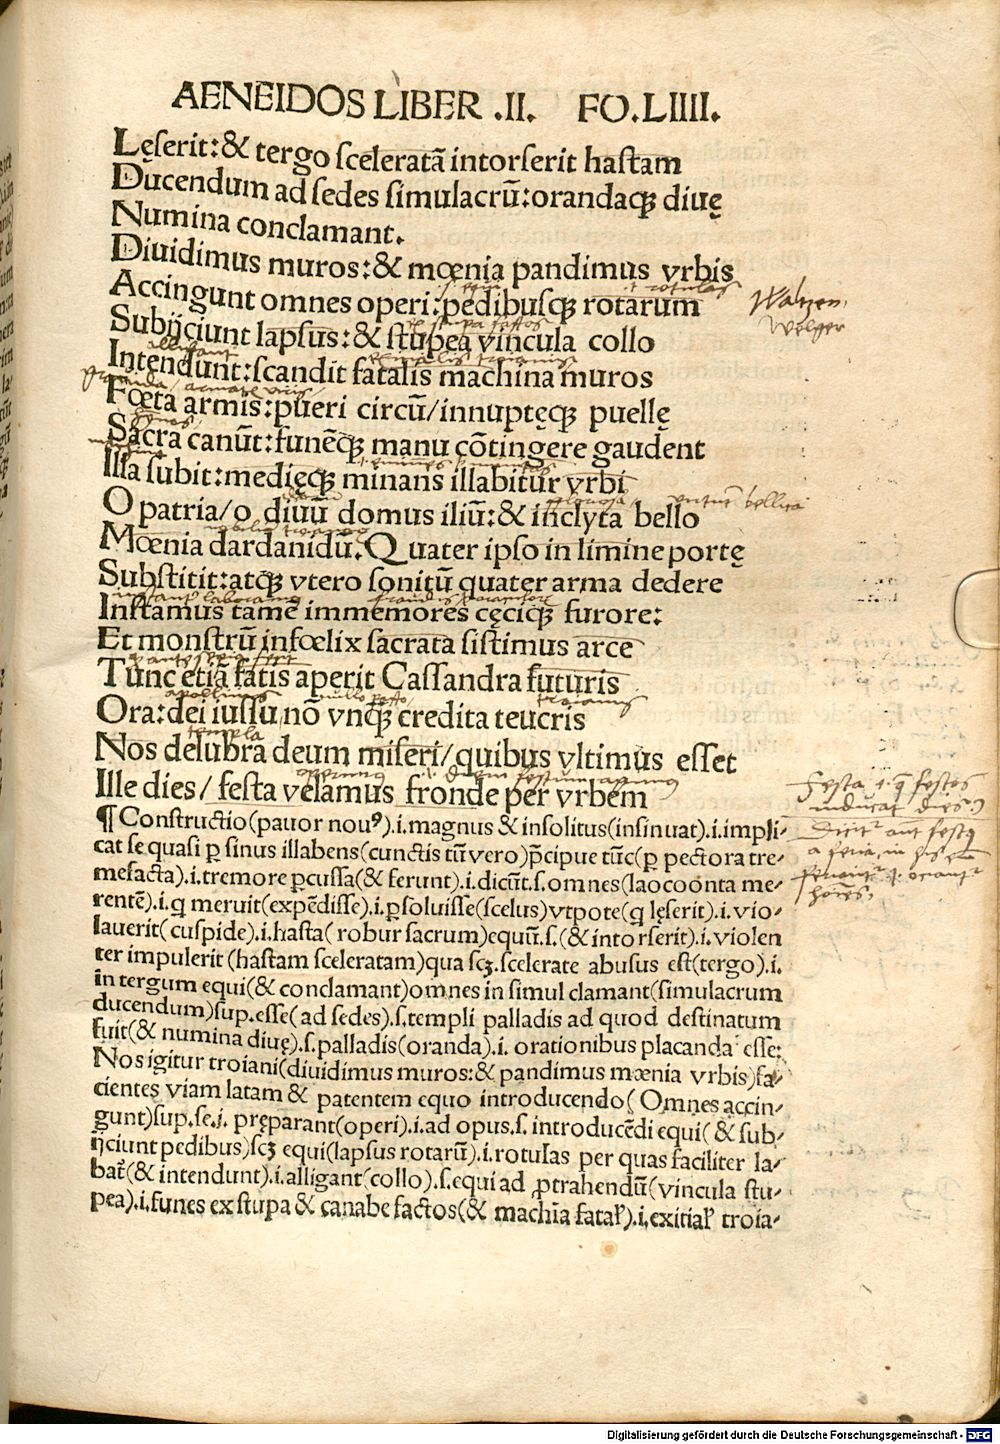 AENEIDOS LIBER .II. FO.LIIII.
Lęserit:& tergo sceleratā intorserit hastam
Ducendum ad sedes simulacrū:orandaqꝫ diuę
Numina conclamant.
Diuidimus muros:& mœnia pandimus vrbis
Accingunt omnes operi:pedibusqꝫ rotarum
Subijciunt lapsus:& stupea vincula collo
Intendunt:scandit fatalis machina muros
Fœta armis:pueri circū/innuptęqꝫ puellę
Sacra canūt:funēqꝫ manu cōtingere gaudent
Illa subit:medięqꝫ minans illabitur vrbi
O patria/o diuū domus iliū:& inclyta bello
Mœnia dardanidū:Quater ipso in limine portę
Substitit:atqꝫ vtero sonitū quater arma dedere
Instamus tamē immemores cęciqꝫ furore:
Et monstrū infœlix sacrata sistimus arce
Tunc etiā fatis aperit Cassandra futuris
Ora:dei iussu nō vnqꝫ credita teucris
Nos delubra deum miseri/quibus vltimus esset
templa
Ille dies/festa velamus fronde per vrbem
¶ Constructio(pauor nouꝰ).i.magnus & insolitus(insinuat).i.impli⸗
cat se quasi ꝑ sinus illabens(cunctis tū vero)p̄cipue tūc(ꝑ pectora tre⸗
mefacta).i.tremore ꝑcussa(& ferunt).i.dicūt.s.omnes(laocoonta me⸗
rentē).i.q meruit(expēdisse).i.ꝑsoluisse(scelus)vtpote(q lęserit).i.vio⸗
lauerit(cuspide).i.hasta(robur sacrum)equū.s.(& intorserit).i.violen
ter impulerit(hastam sceleratam)qua scꝫ.scelerate abusus est(tergo).i.
in tergum equi(& conclamant)omnes in simul clamant(simulacrum
ducendum)sup.esse(ad sedes).s.templi palladis ad quod destinatum
fuit(& numina diuę).s.palladis(oranda).i. orationibus placanda esse:
Nos igitur troiani(diuidimus muros:& pandimus mœnia vrbis)fa⸗
cientes viam latam & patentem equo introducendo(Omnes accin⸗
gunt)sup.se.i. pręparant(operi).i.ad opus.s. introducēdi equi(& sub⸗
ijciunt pedibus)scꝫ equi(lapsus rotarū).i.rotulas per quas faciliter la⸗
bat̄(& intendunt).i.alligant(collo).s.equi ad ꝓtrahendū(vincula stu⸗
pea).i.funes ex stupa & canabe factos(& machīa fatal̄).i.exitial̄ troia⸗
Digitalisierung gefördert durch die Deutsche Forschungsgemeinschaft - DFG